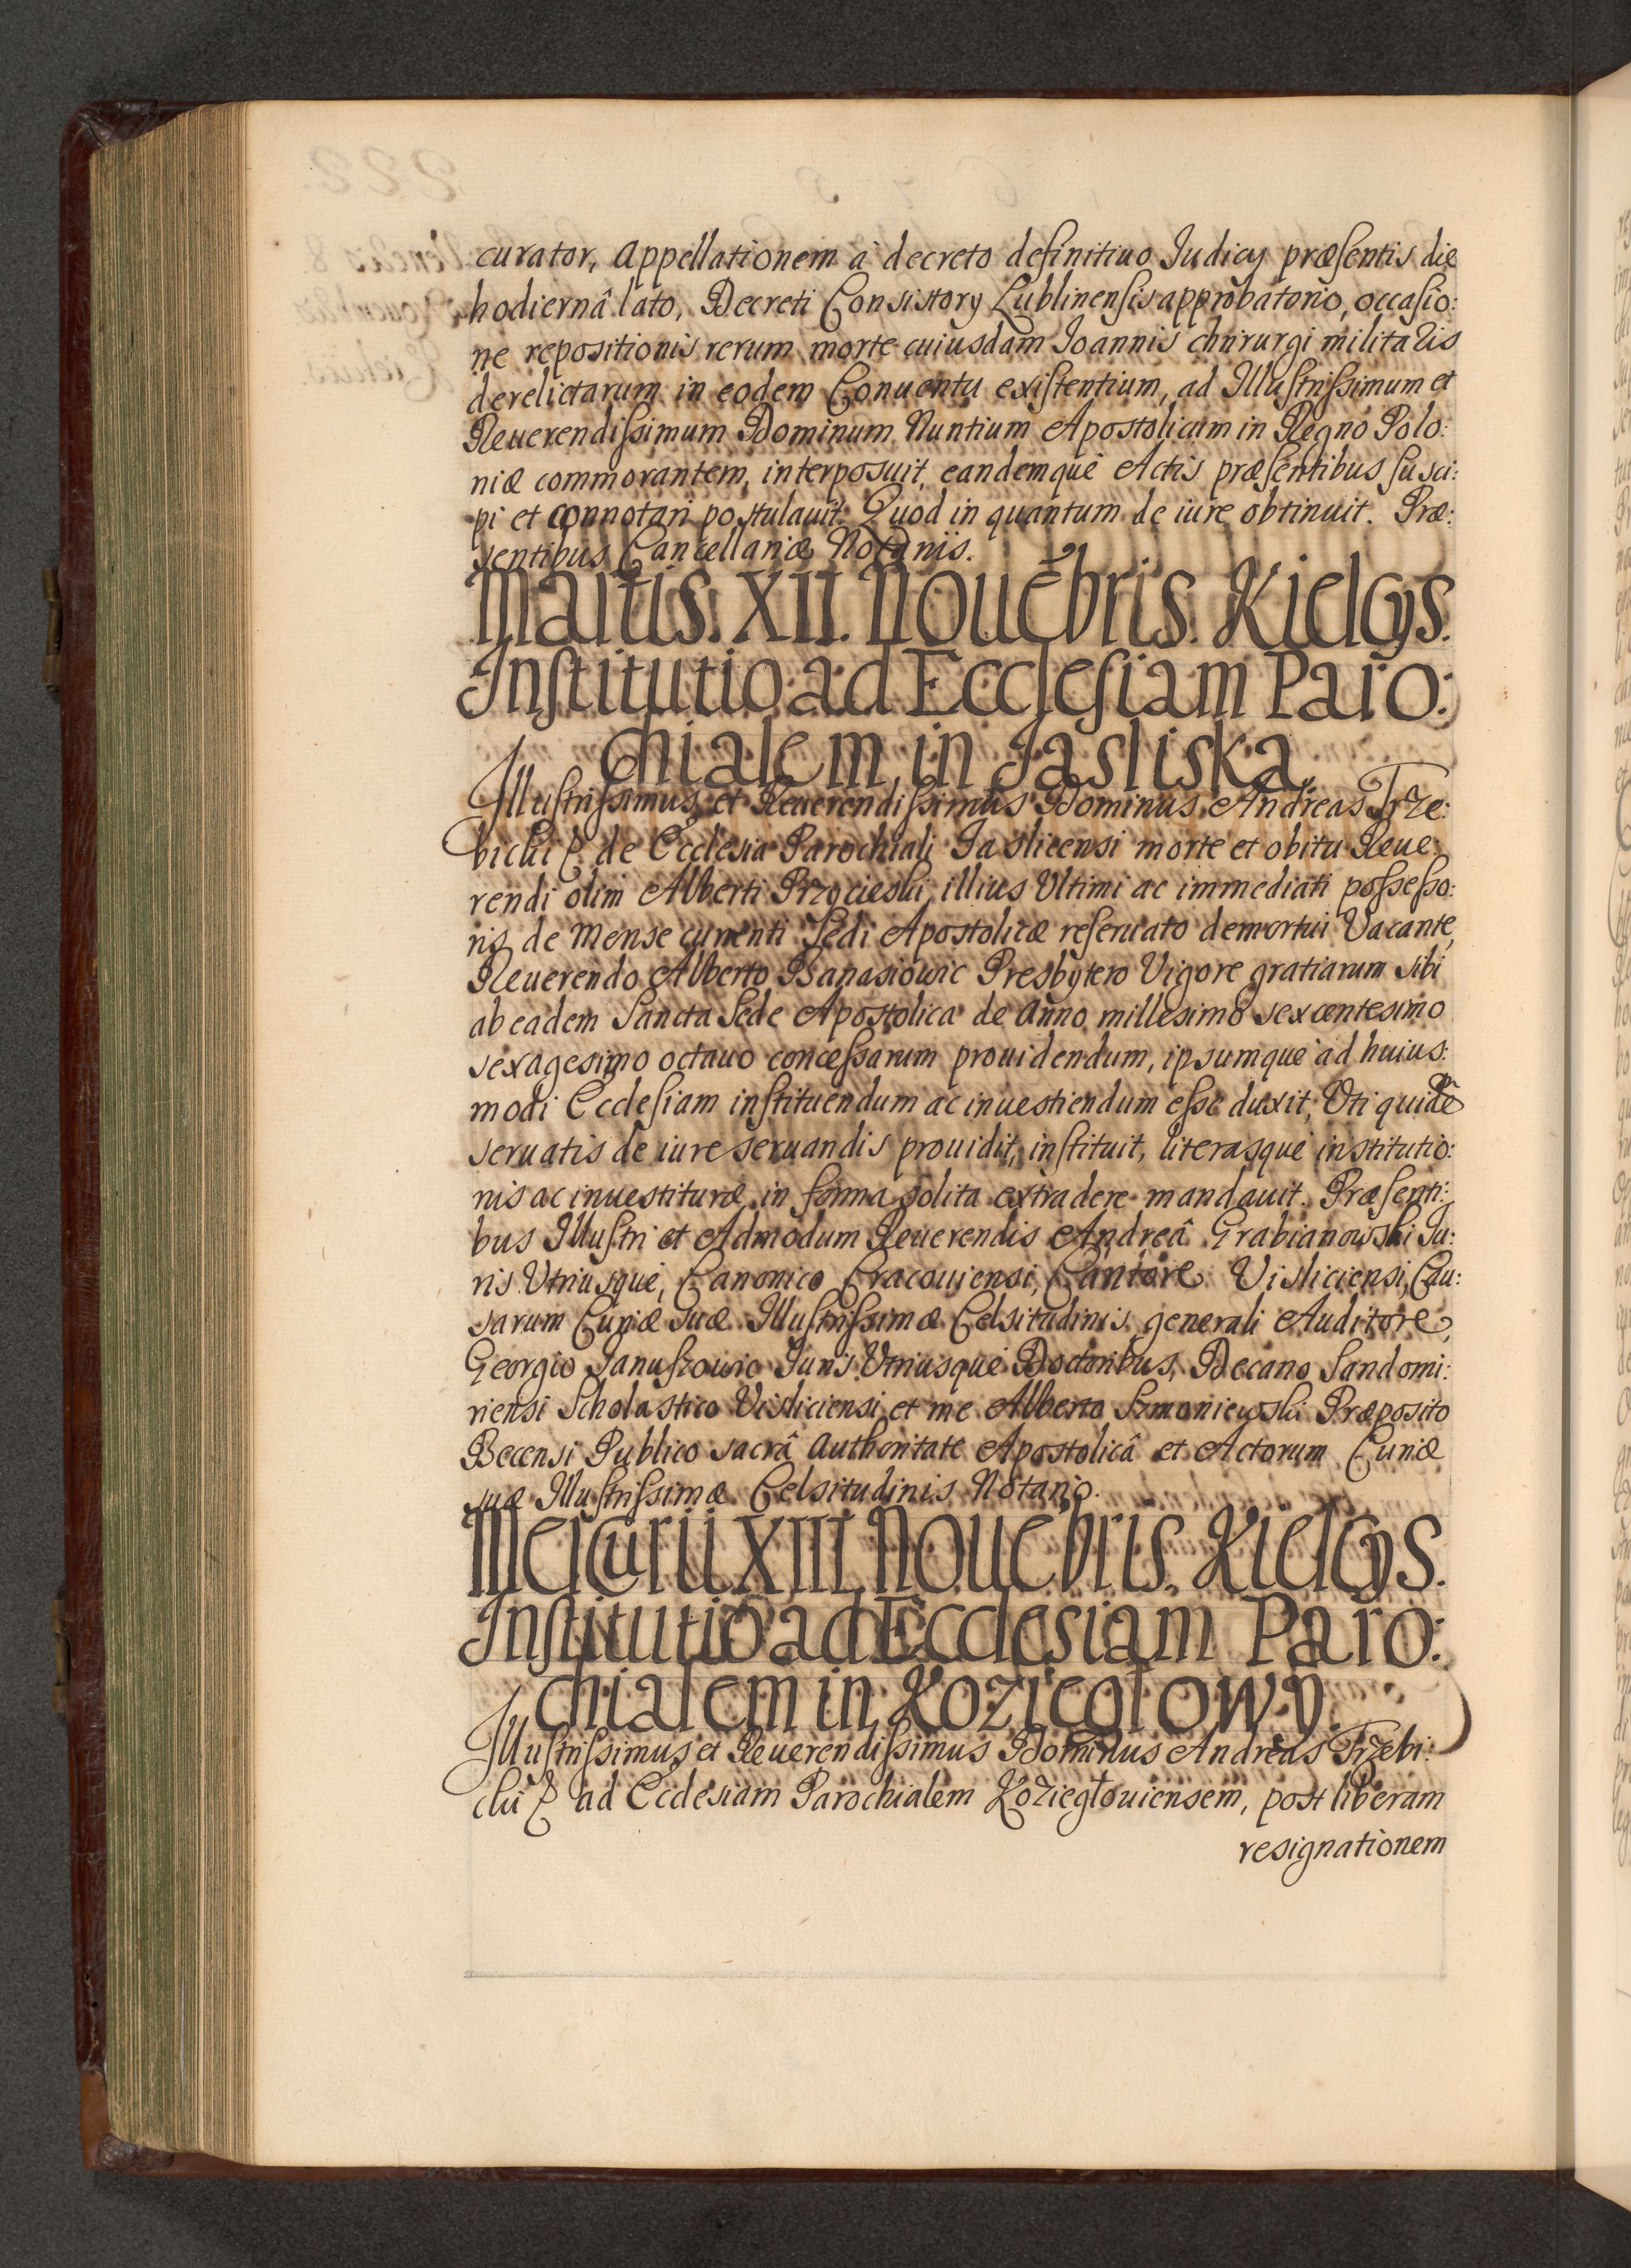 curator, Appellationem à decreto definitiuo Iudicij præsentis die
hodiernâ lato, Decreti Consistorij Lublinensis approbatorio, occasio:
ne repositionis rerum morte cuiusdam Ioannis chirurgi militaris
derelictarum in eodem Conuentu existentium, ad Illustrissimum et
Reuerendissimum Dominum Nuntium Apostolicum in Regno Polo:
niæ commorantem, interposuit, eandemque Actis præsentibus susci:
pi et connotari postulauit. Quod in quantum de iure obtinuit. Præ:
sentibus Cancellariæ Notarijs.
Martis. XII. Nouēbris. Kielcijs.
Institutio ad Ecclesiam Paro:
chialem in Jasliska.
Illustrissimus et Reuerendissimus Dominus Andreas Trze:
bicki de Ecclesia Parochiali Jaslicensi morte et obitu Reue:
rendi olim Alberti illius Vltimi ac immediati possesso:
ris de Mense currenti Sedi Apostolicæ reseruato demortui Vacante,
Reuerendo Alberto Banasiowic Presbytero Vigore gratiarum sibi
ab eadem Sancta Sede Apostolica de Anno millesimo sexcentesimo
sexagesimo octauo concessarum prouidendum, ipsumque ad huius:
modi Ecclesiam instituendum ac inuestiendum esse duxit, Vti quidē
seruatis de iure seruandis prouidit, instituit, literasque institutio:
nis ac inuestituræ in forma solita extradere mandauit. Præsenti:
bus Illustri et Admodum Reuerendis Andreâ Grabianowski Iu:
ris Vtriusque, Canonico Cracouiensi, Cantore Visliciensi, Cau:
sarum Curiæ suæ Illustrissimæ Celsitudinis generali Auditore,
Georgio Januszowic Iuris Vtriusque Doctoribus, Decano Sandomi:
riensi Scholastico Visliciensi et me Alberto Szmoniewski Præposito
Becensi Publico sacrâ Authoritate Apostolicâ et Actorum Curiæ
suæ Illustrissimæ Celsitudinis Notario.
Mercurii XIII. Nouēbris. Kielcijs.
Institutio ad Ecclesiam Paro:
chialem in Koziegłowy.
Illustrissimus et Reuerendissimus Dominus Andreas Trzebi:
cki ad Ecclesiam Parochialem Koziegłouiensem, post liberam
resignationem